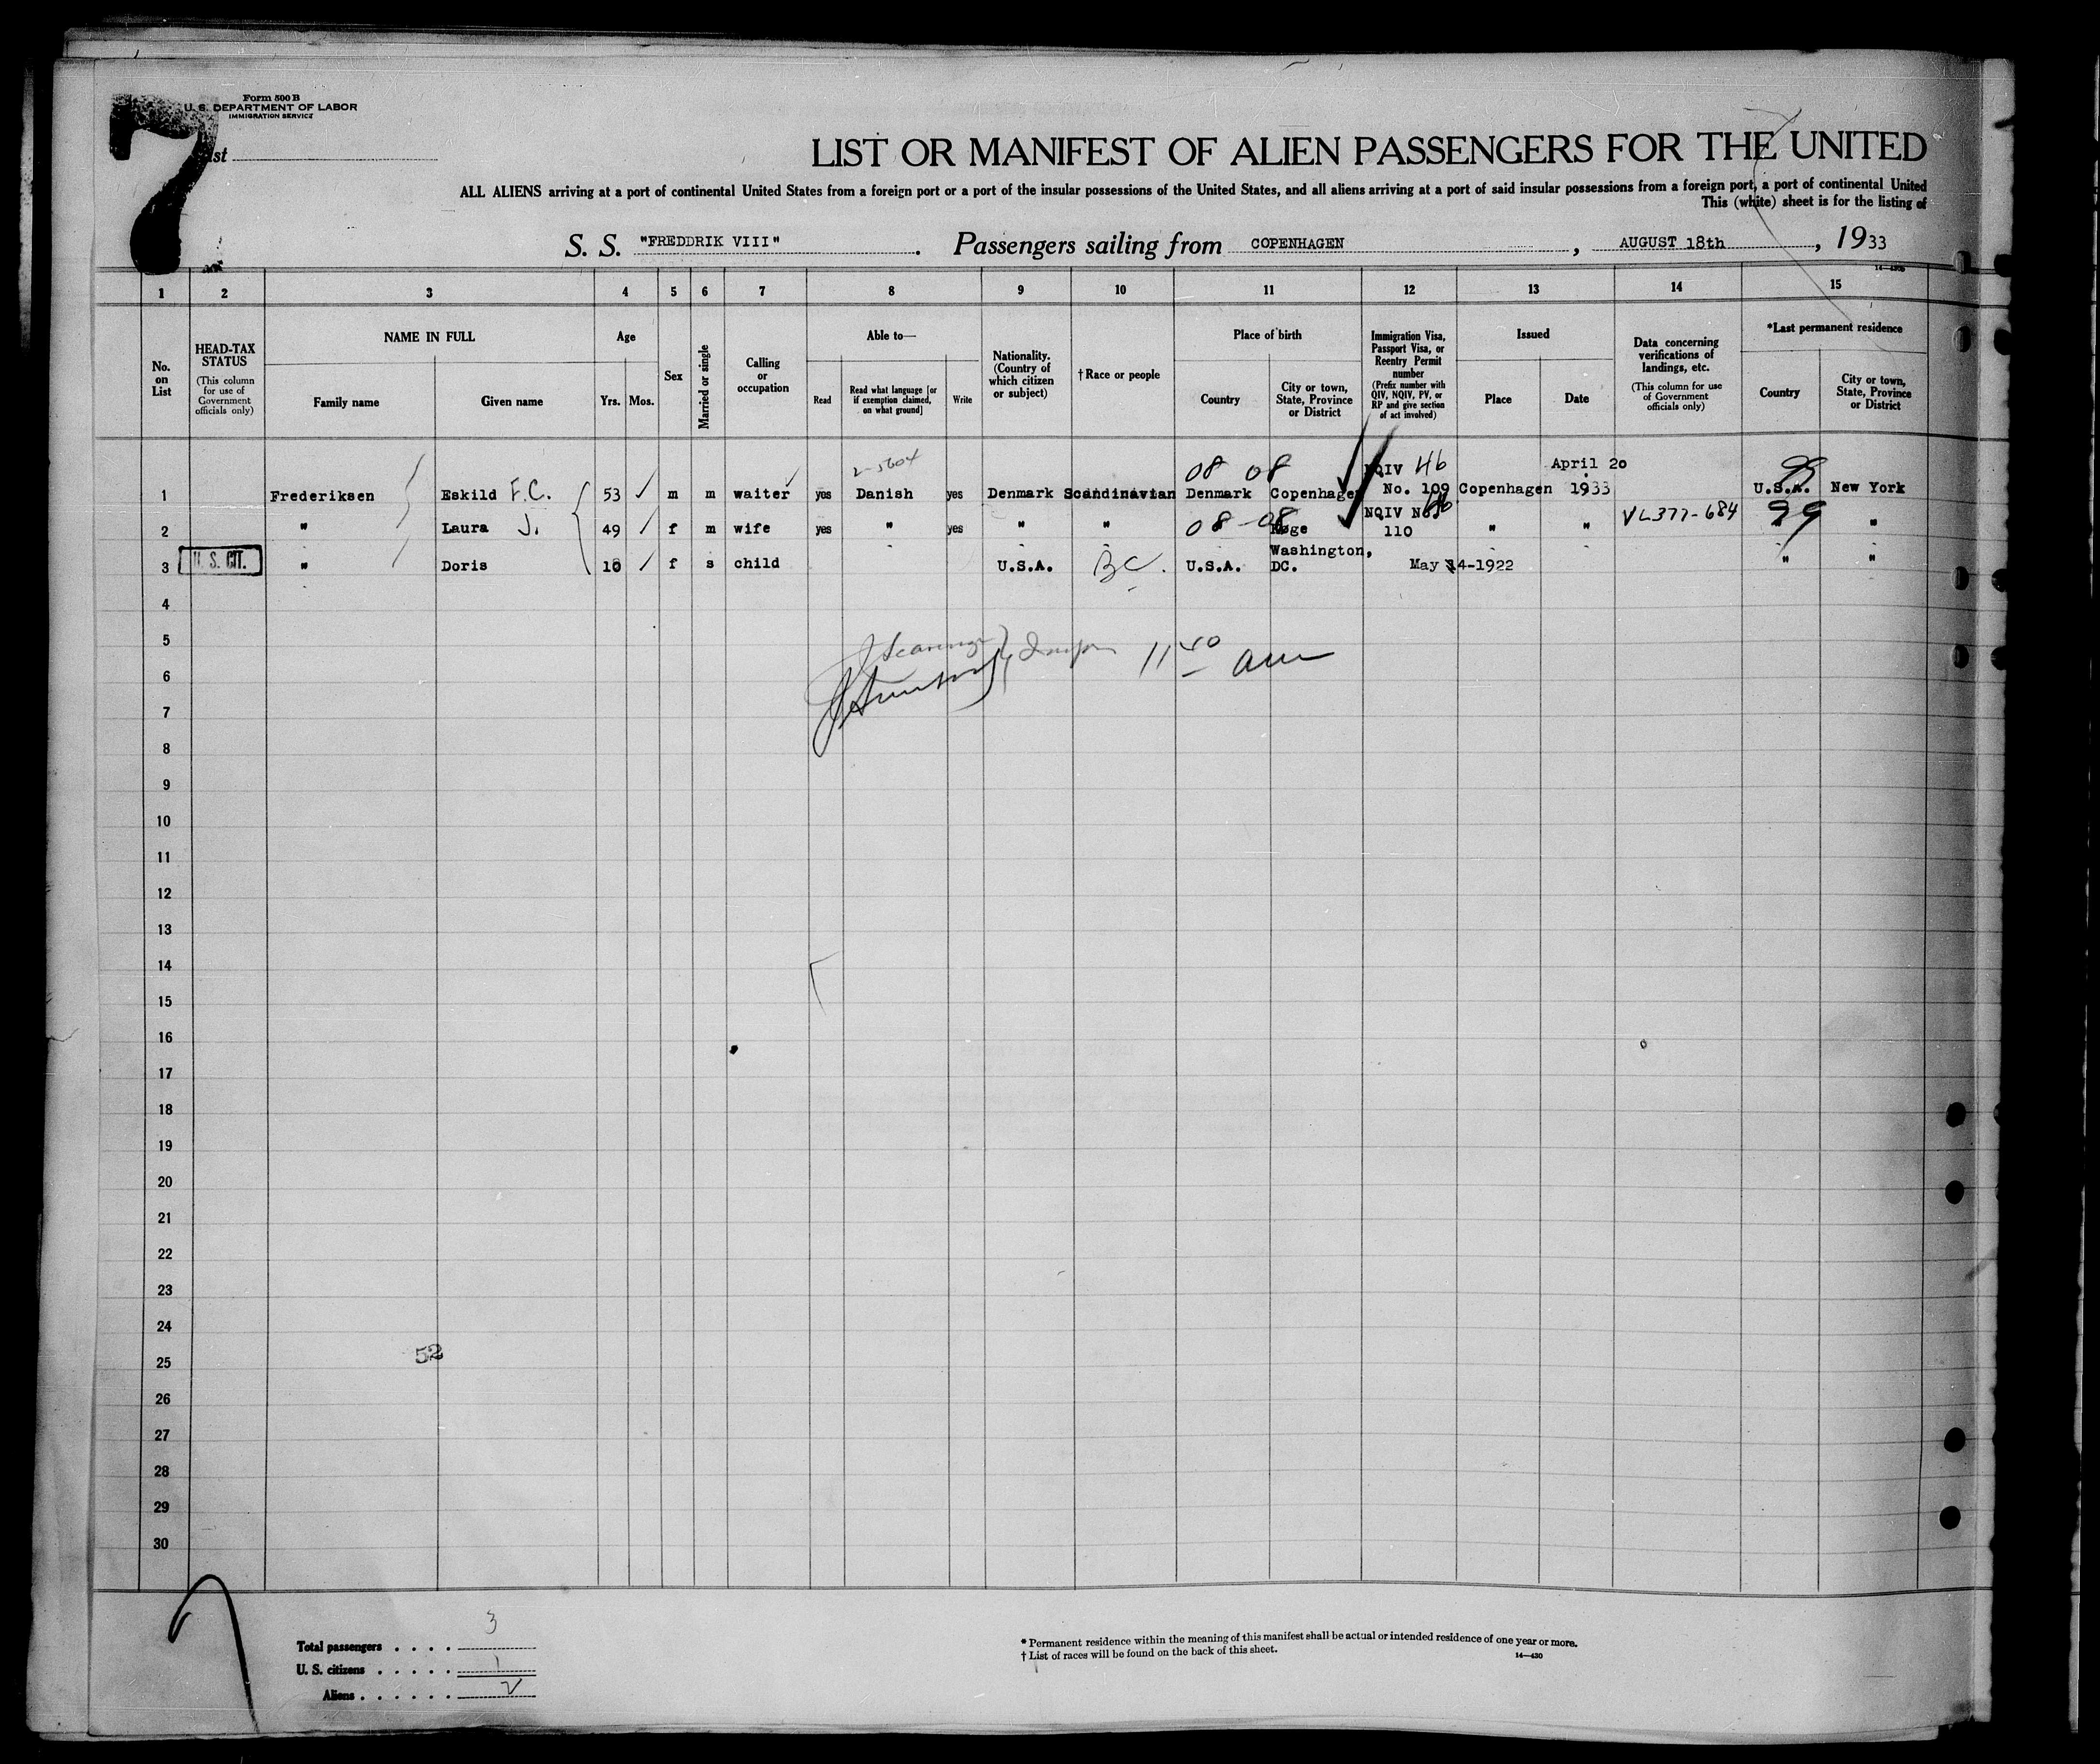 7
Form 500 B
U. S. DEPARTMENT OF LABOR
IMMIGRATION SERVICE
LIST OR MANIFEST OF ALIEN PASSENGERS FOR THE UNITED
ALL ALIENS arriving at a port of continental United States from a foreign port or a port of the insular possessions of the United States, and all aliens arriving at a port of said insular possessions from a foreign port, a port of continental United
This (white) sheet is for the listing of
S. S. "FREDDRIK VIII". Passengers sailing from COPENHAGEN, AUGUST 18th, 1933
1 2 3 4 5 6 7 8 9 10 11 12 13 14 15
No. on List
HEAD-TAX STATUS
(This column for use of Government officials only)
NAME IN FULL
Family name
Given name
Age
Yrs. Mos.
Sex
Married or single
Calling or occupation
Able to—
Read
Read what language [or if exemption claimed, on what ground]
Write
Nationality. (Country of which citizen or subject)
†Race or people
Place of birth
Country
City or town, State, Province or District
Immigration Visa, Passport Visa, or Reentry Permit number
(Prefix number with QIV, NQIV, PV, or RP and give section of act involved)
Issued
Place
Date
Data concerning verifications of landings, etc.
(This column for use of Government officials only)
*Last permanent residence
Country
City or town, State, Province or District
2-5604 08 08 NQIV 4b April 20 99
1 Frederiksen Eskild F.C. 53 m m waiter yes Danish yes Denmark Scandinavian Denmark Copenhagen No. 109 Copenhagen 1933 U.S.A. New York
2 " Laura J. 49 f m wife yes " yes " " 08-08 Køge NQIV No. 4b 110 " " VL377-684 99 "
3 U. S. CIT. " Doris 10 f s child U.S.A. BC. U.S.A. Washington, DC. May 14-1922 " "
4
5
11 50 am
6
7
8
9
10
11
12
13
14
15
16
17
18
19
20
21
22
23
24
52
25
26
27
28
29
30
Total passengers . . . . 3
U. S. citizens . . . . . 1
Aliens . . . . . . 2
* Permanent residence within the meaning of this manifest shall be actual or intended residence of one year or more.
† List of races will be found on the back of this sheet.
14—430